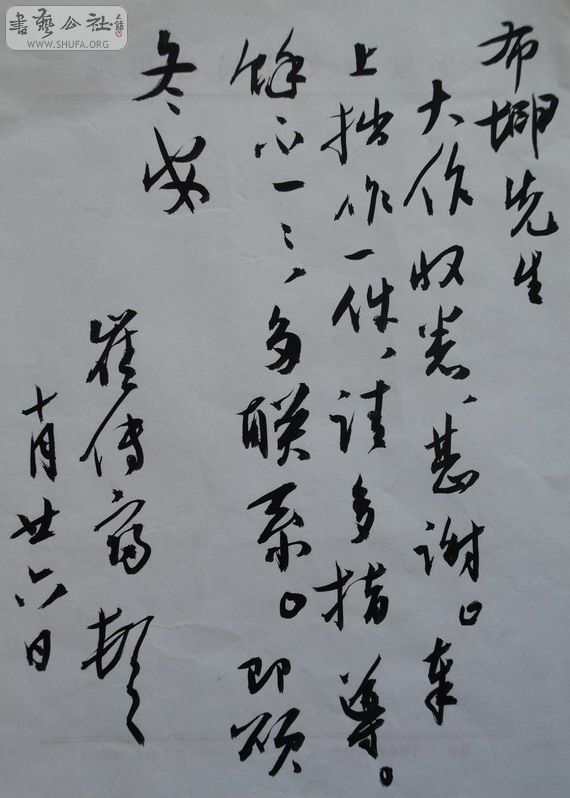 書藝公社
WWW.SHUFA.ORG
布衣先生
大作收悉、甚谢。奉
上拙作一件、请多指导。
馀不一一、多联系。即颂
冬安
崔传富 顿
十月廿六日